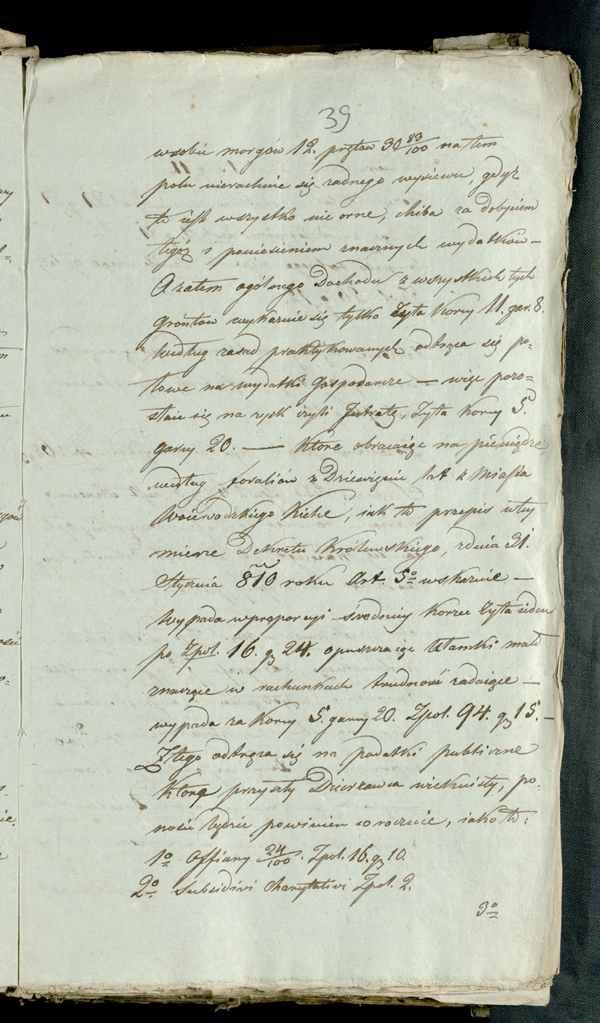 39
wsobie morgów 12. prętów 30 83/100 na tem
polu nierachuie się żadnego wysiewu, gdyż
to iest wszystko nie orne, chiba za dobyciem
tegoż i poniesieniem znacznych wydatków —
A zatem ogólnego Dochodu z wszystkich tych
Grontów wykazuie się tylko Żyta Korcy 11. gar. 8.
według zasad praktykowanych odtrąca się po-
łowę na wydatki Gospodarcze — więc pozo-
staie się na zysk czyli Intratę, Żyta Korcy 5.
garcy 20. — które obracaiąc na pieniądze
według foraliów z Dziewięciu lat z Miasta
Woiewodzkiego Kielc, iak to przepis w tey
mierze Dekretu Królewskiego, z dnia 31.
Stycznia 810 roku Art. 5o wskazuie —
wypada w proporcyi średniey korzec Żyta ieden
po Zpol. 16. g 24. opuszczaiąc ułamki mało
znaczące w rachunkach trudność zadaiące —
wypada za Korcy 5. garcy 20. Zpol. 94. g 15. —
Z tego odtrąca się na podatki publiczne
które przyszły Dzierżawca wieczysty, po-
nosić będzie powinien corocznie, iako to:
1o Offiary 24/100. Zpol. 16. g 10.
2o Subsidivi Charytativi Zpol. 2.
3o